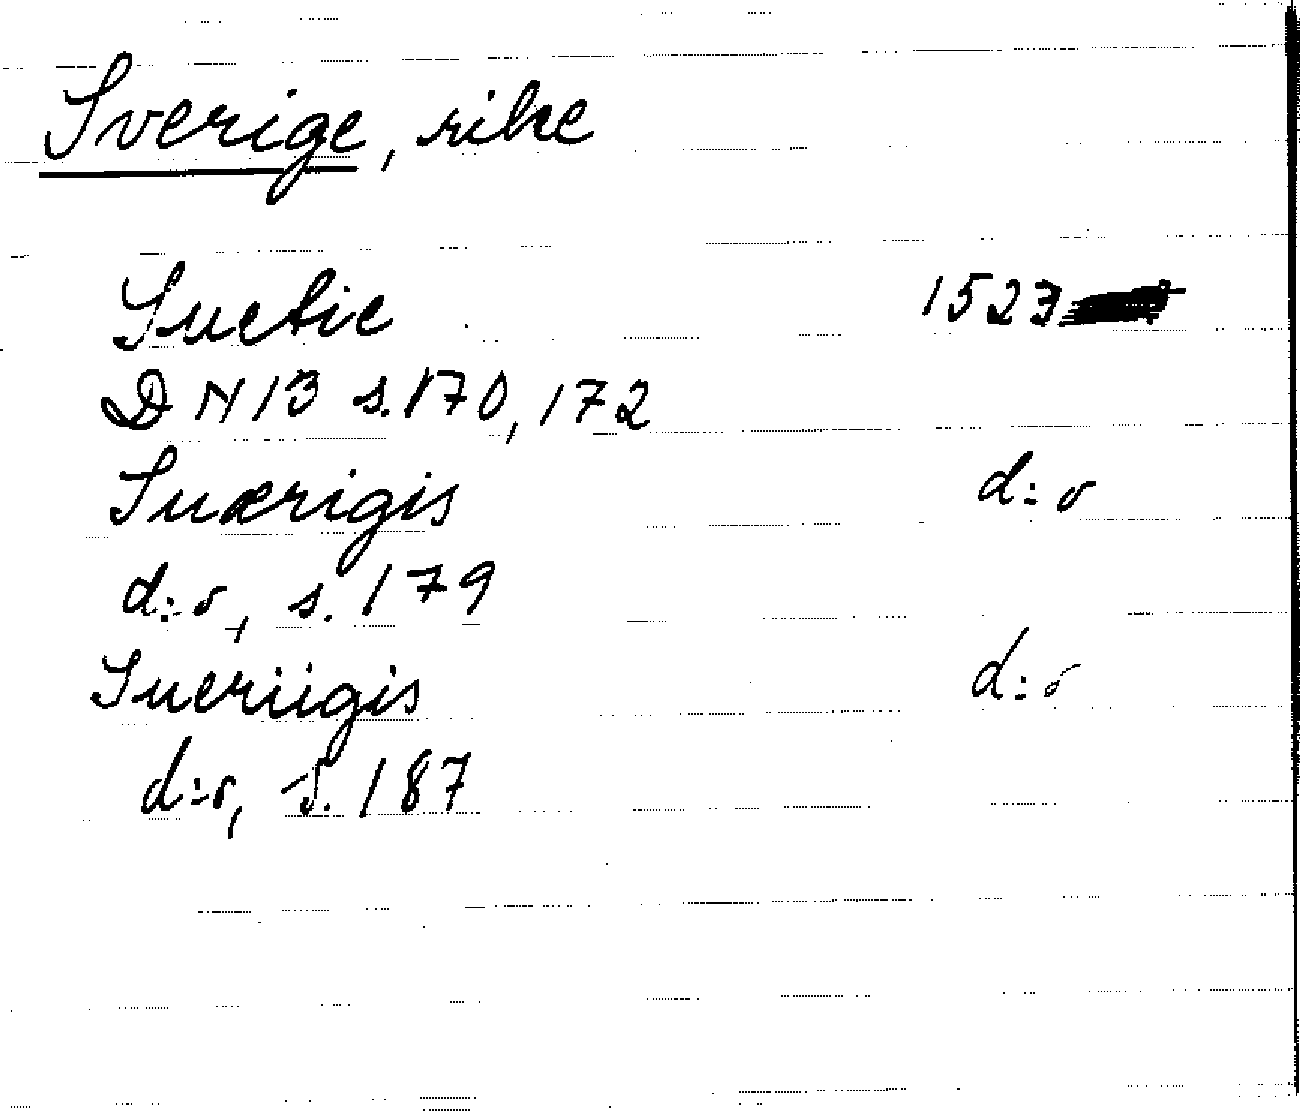 Sverige, rike
Suetie 1523
DN 13 s. 170, 172
Suærigis d:o
d:o, s. 179
Sueriigis d:o
d:o, s. 187